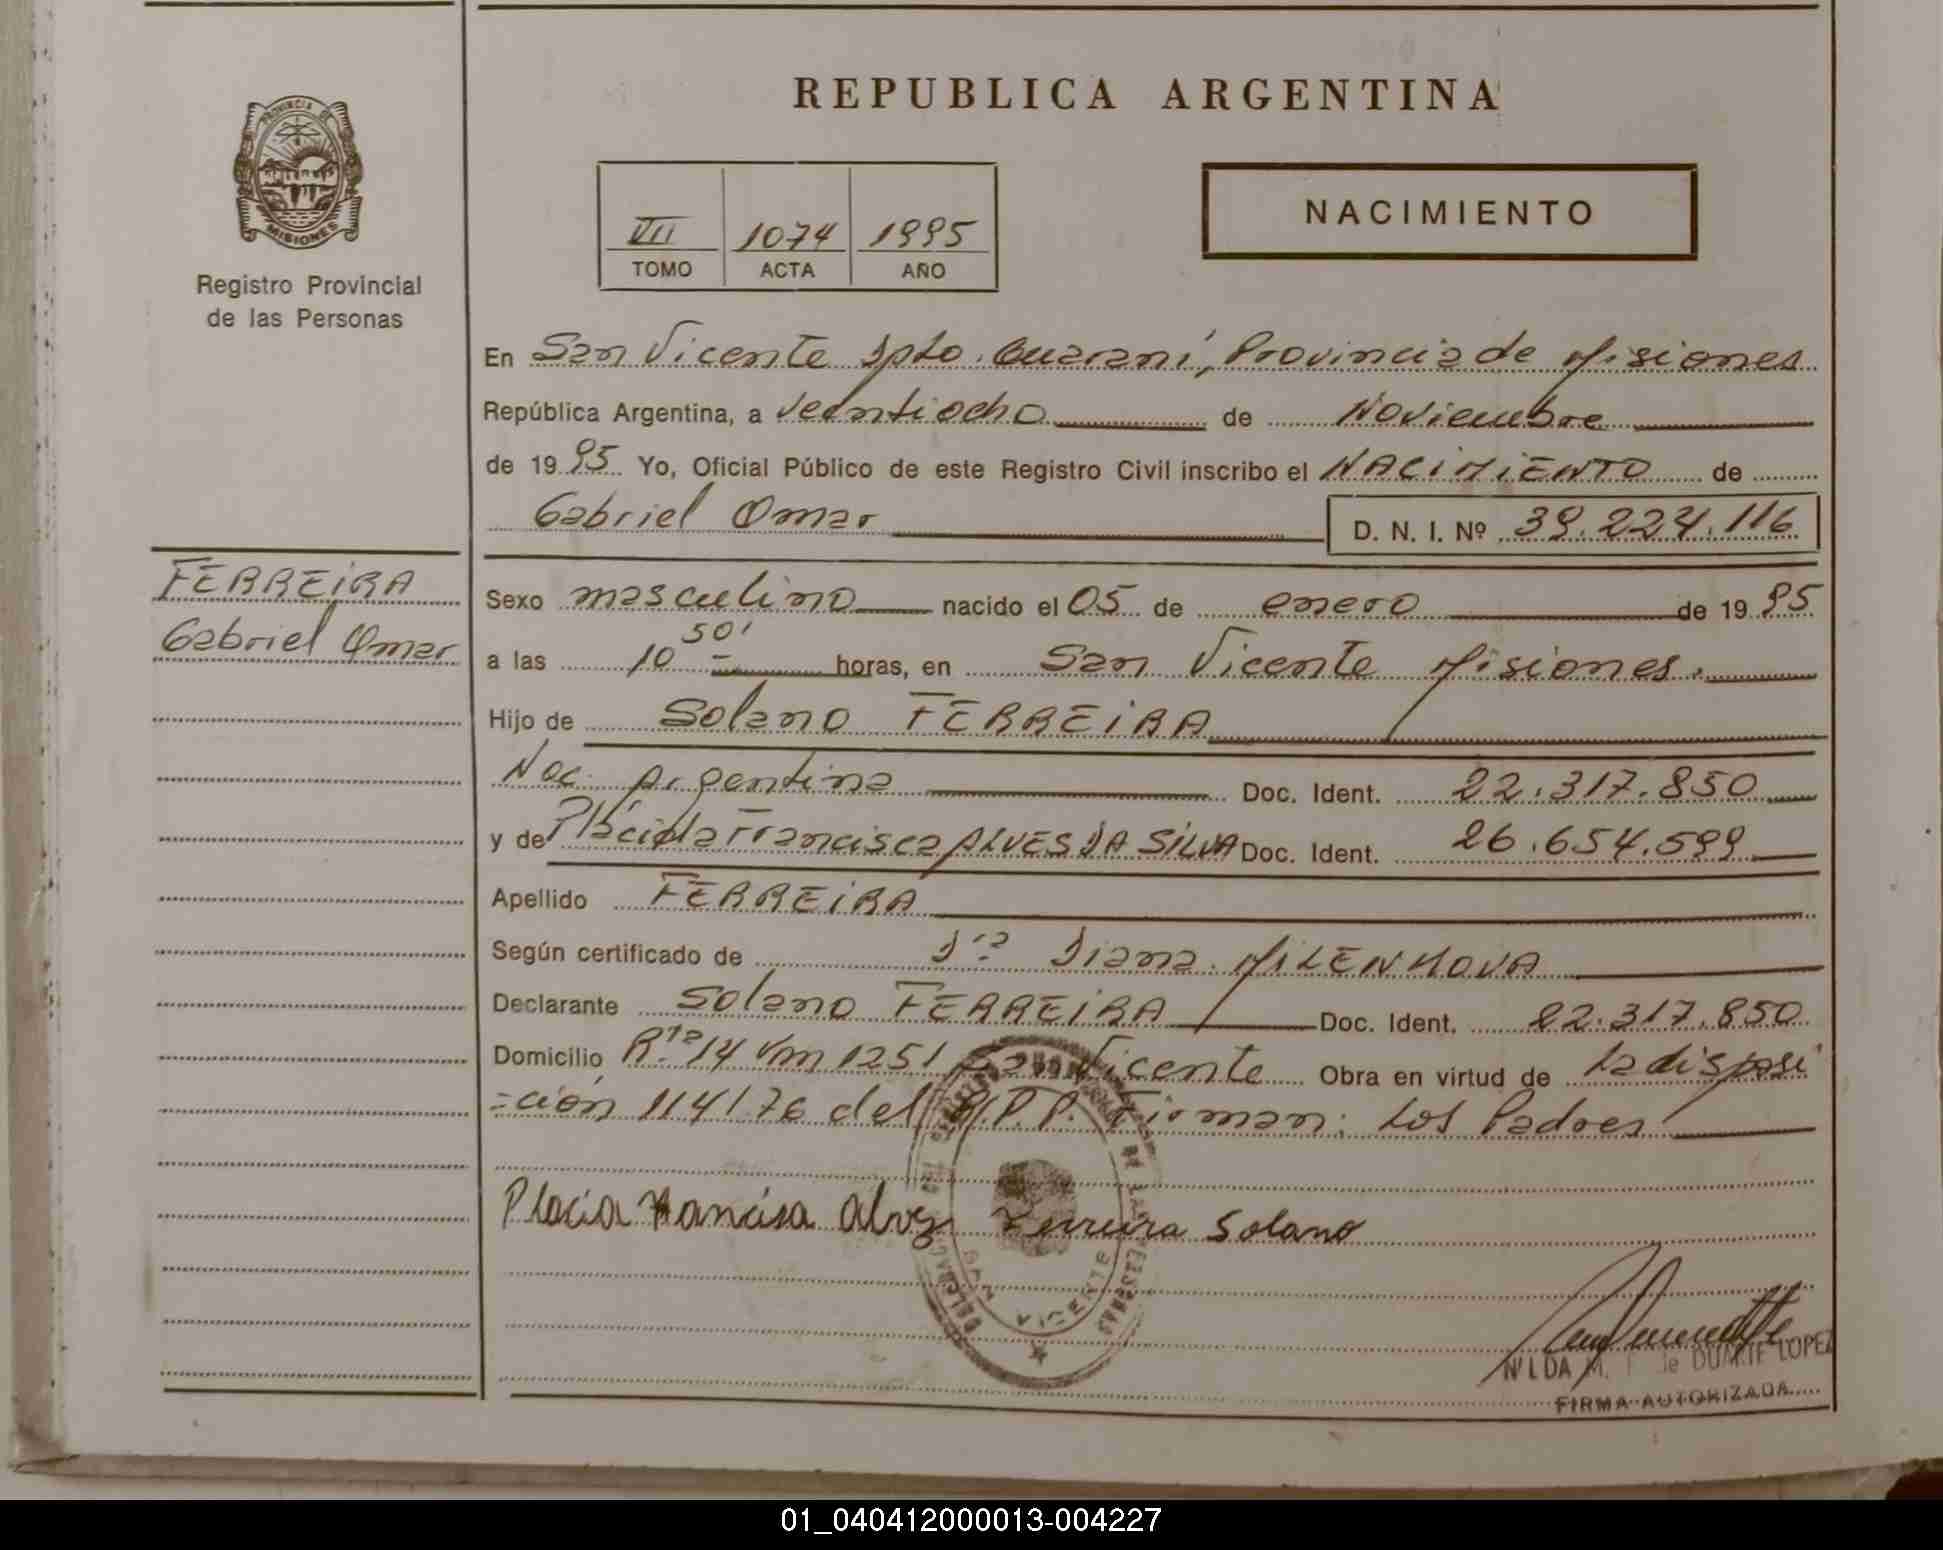 REPUBLICA ARGENTINA
PROVINCIA DE
MISIONES
Registro Provincial
de las Personas
VII 1074 1995
TOMO ACTA AÑO
NACIMIENTO
En San Vicente Dpto. Guaraní, Provincia de Misiones
República Argentina, a veintiocho de Noviembre
de 1995 Yo, Oficial Público de este Registro Civil inscribo el NACIMIENTO de
Gabriel Omar D. N. I. Nº 39.224.116
FERREIRA
Gabriel Omar
Sexo masculino nacido el 05 de enero de 1995
a las 10 50' horas, en San Vicente Misiones.
Hijo de Solano FERREIRA
Nac. Argentina Doc. Ident. 22.317.850
y de Plácida Francisca ALVES DA SILVA Doc. Ident. 26.654.599
Apellido FERREIRA
Según certificado de Dra Diana MILENKOVA
Declarante Solano FERREIRA Doc. Ident. 22.317.850
Domicilio R.ta 14 Km 1251 San Vicente Obra en virtud de la disposi
=ción 114/76 del R.P.P. Firman: Los Padres
Placia Francisa Alvez Ferreira Solano
SAN VICENTE
NILDA M. de DUARTE LOPEZ
FIRMA AUTORIZADA
01_040412000013-004227